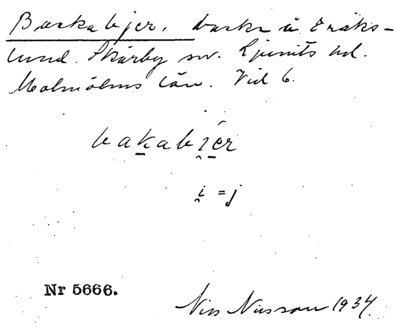 Backabjer, backe å Eriks-
lund. Skårby sn. Ljunits hd.
Malmöhus län. Vid 6.
bakabi̯ér
i̯ = j
Nr 5666.
Nils Nilsson 1934